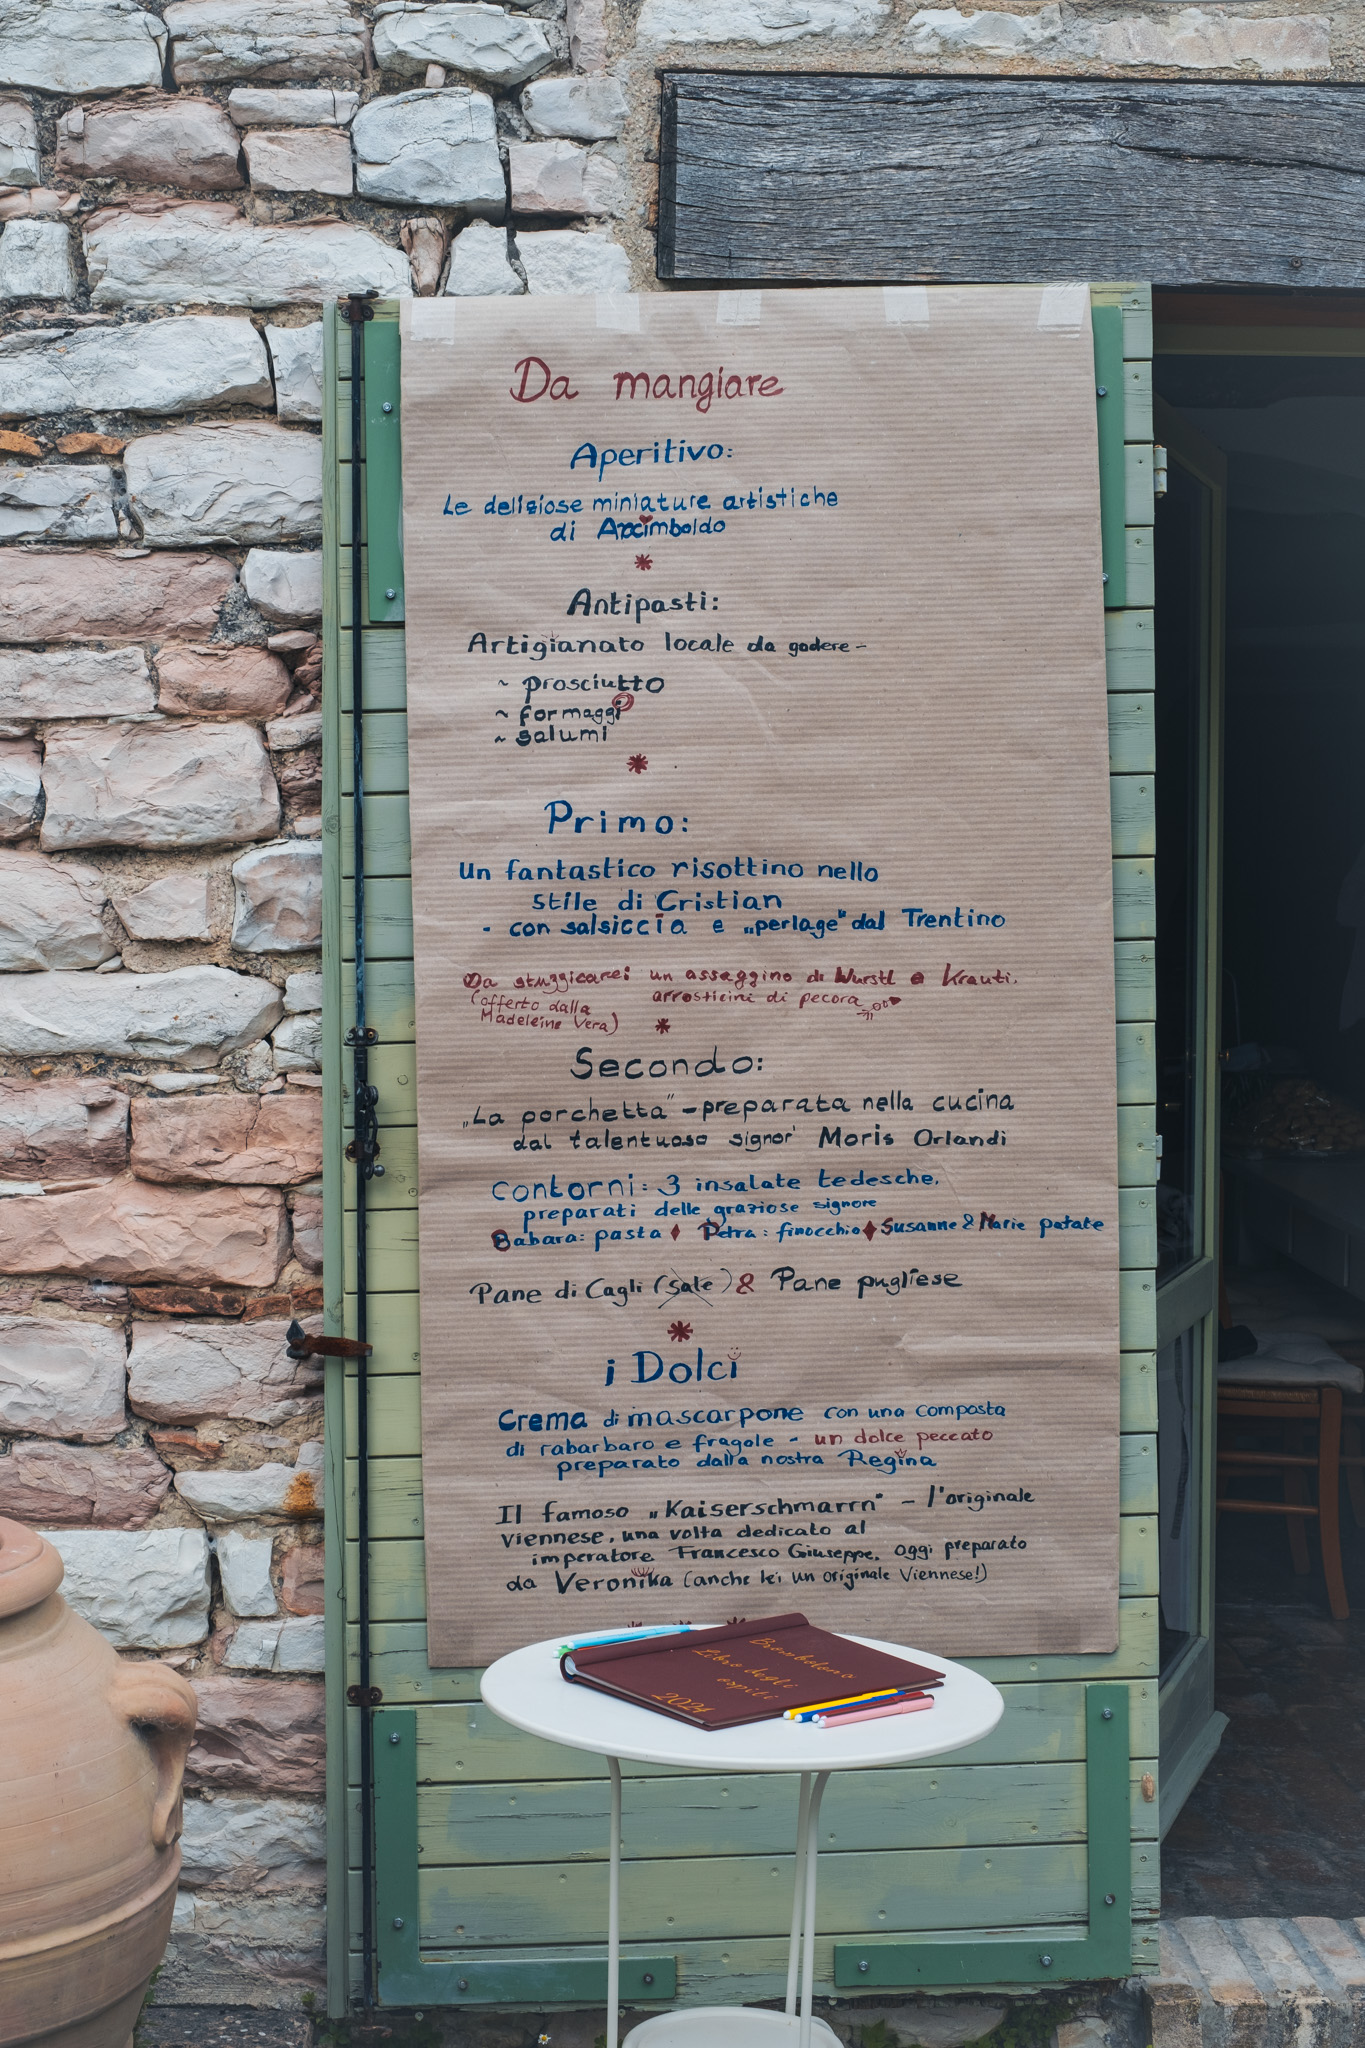 Da mangiare
Aperitivo:
Le deliziose miniature artistiche
di Arcimboldo
Antipasti:
Artigianato locale da godere -
~ prosciutto
~ formaggi
~ salumi
Primo:
Un fantastico risottino nello
stile di Cristian
- con salsiccia e „perlage" dal Trentino
Da stuzzicare: un assaggino di Wurstl e Krauti,
(offerto dalla arrosticini di pecora
Madeleine Vera)
Secondo:
„La porchetta" - preparata nella cucina
dal talentuoso signor' Moris Orlandi
Contorni: 3 insalate tedesche,
preparati delle graziose signore
Babara: pasta ♦ Petra: finocchio ♦ Susanne & Marie patate
Pane di Cagli (sale) & Pane pugliese
i Dolci
Crema di mascarpone con una composta
di rabarbaro e fragole - un dolce peccato
preparato dalla nostra Regina
Il famoso „Kaiserschmarrn" - l'originale
viennese, una volta dedicato al
imperatore Francesco Giuseppe, oggi preparato
da Veronika (anche lei un originale Viennese!)
Brombolona
Libro degli
ospiti
2024